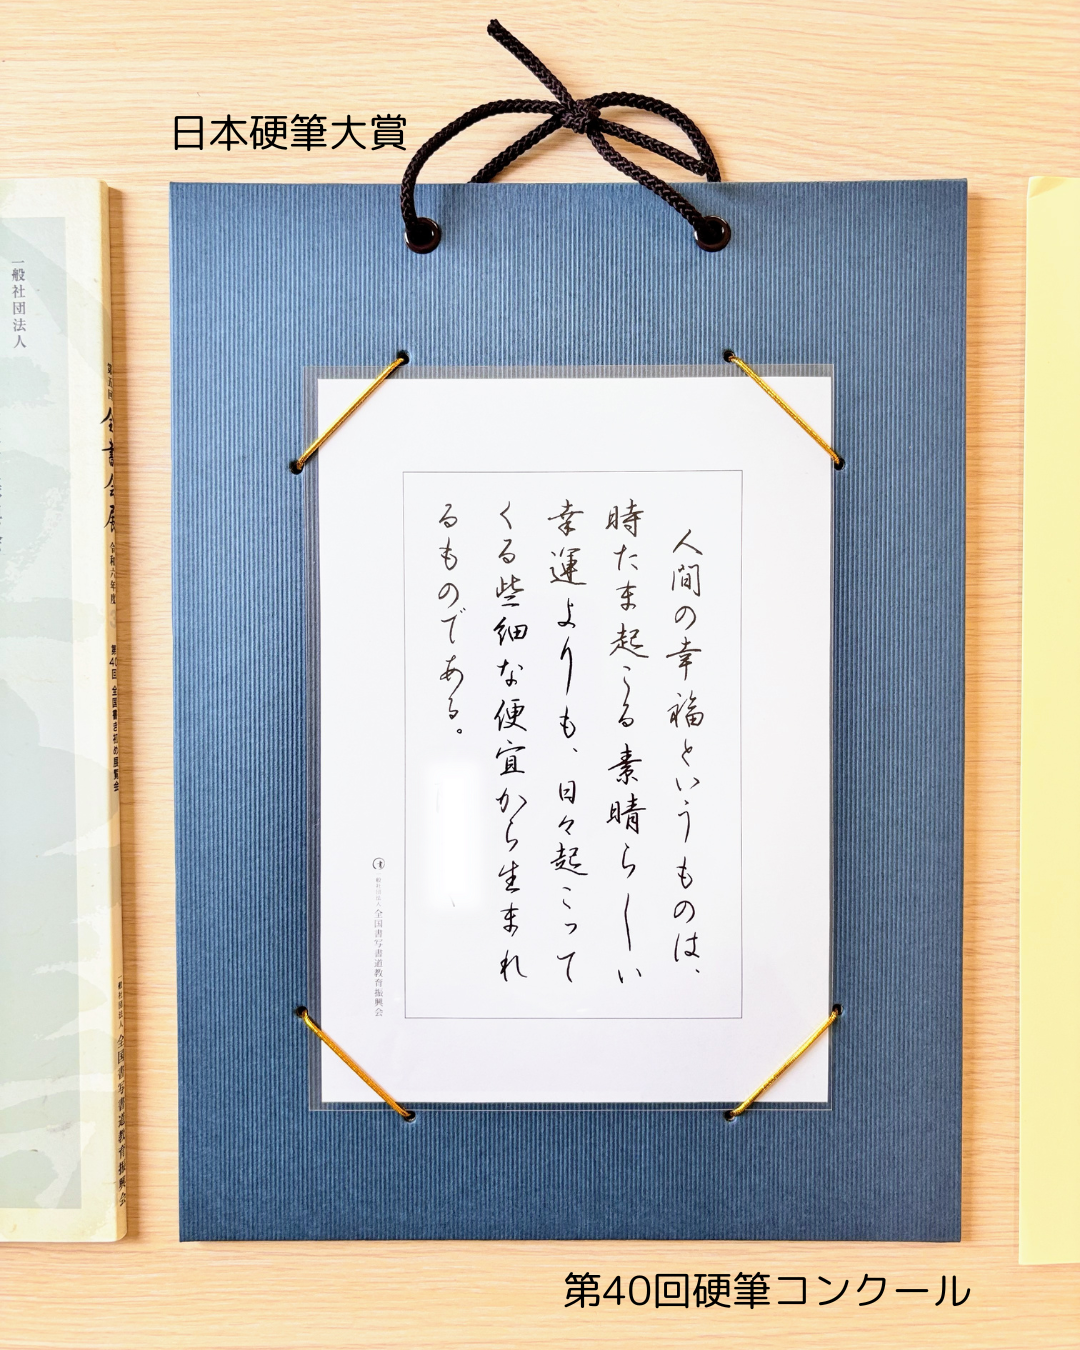 日本硬筆大賞
人間の幸福というものは、
時たま起こる素晴らしい
幸運よりも、日々起こって
くる些細な便宜から生まれ
るものである。
一般社団法人
全国書写書道教育振興会
一般社団法人
全書会展
令和六年度
第40回 全国書き初め展覧会
一般社団法人 全国書写書道教育振興会
第40回硬筆コンクール